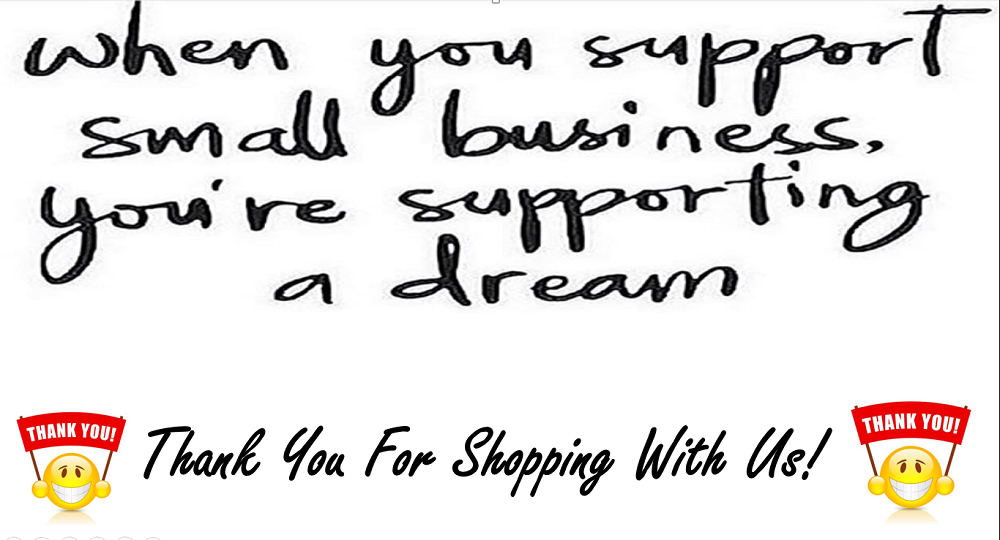 when you support
small business,
you're supporting
a dream
THANK YOU!
Thank You For Shopping With Us!
THANK YOU!